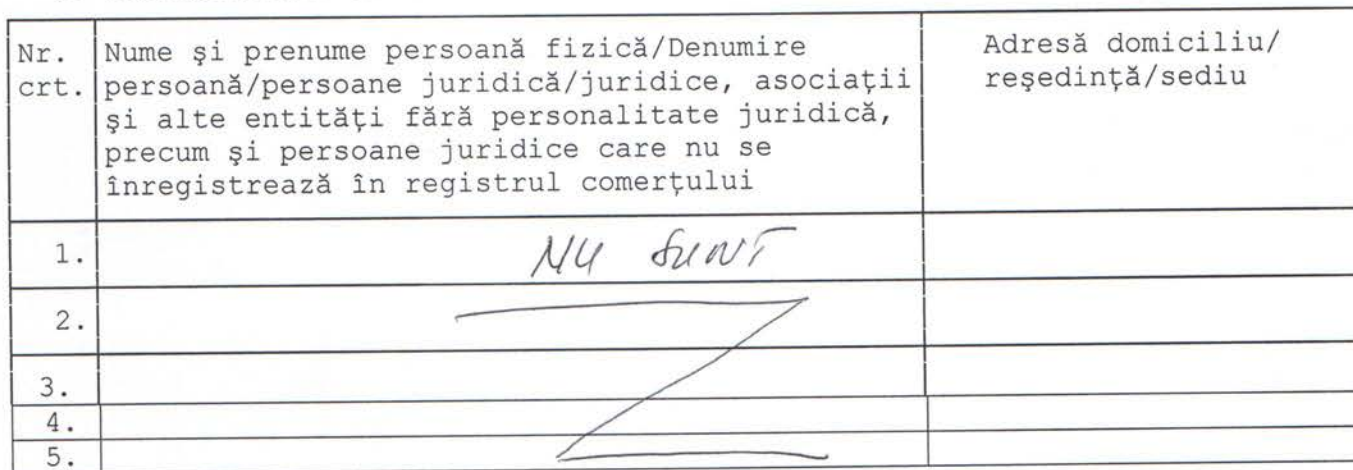 Nr. crt.
Nume şi prenume persoană fizică/Denumire
persoană/persoane juridică/juridice, asociaţii
şi alte entităţi fără personalitate juridică,
precum şi persoane juridice care nu se
înregistrează în registrul comerţului
Adresă domiciliu/
reşedinţă/sediu
1. NU SUNT
2.
3.
4.
5.